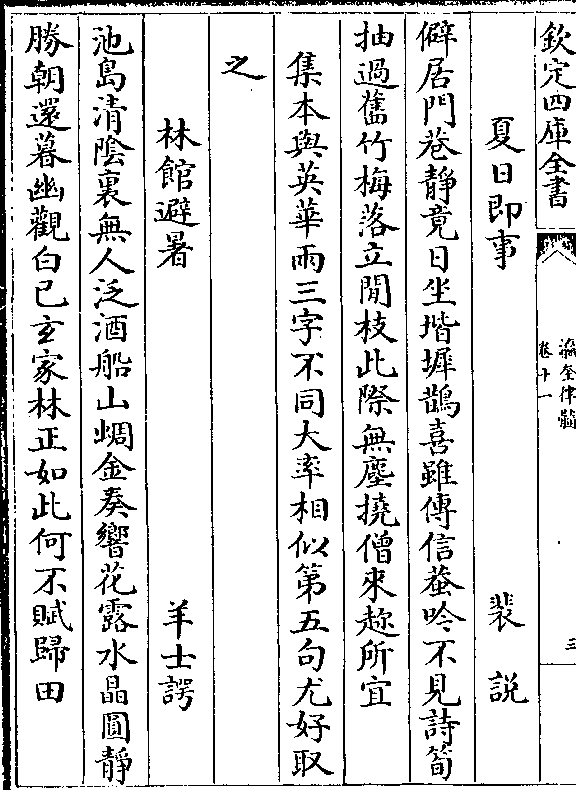 欽定四庫全書
瀛奎律髓
卷十一
三
夏日即事 裴說
僻居門巷靜竟日坐堦墀鵲喜雖傳信蛩吟不見詩筍
抽過舊竹梅落立閒枝此際無塵撓僧來趂所宜
集本與英華兩三字不同大率相似第五句尤好取
之
林館避暑 羊士諤
池島清陰裏無人泛酒船山蜩金奏響花露水晶圓靜
勝朝還暮幽觀白已玄家林正如此何不賦歸田